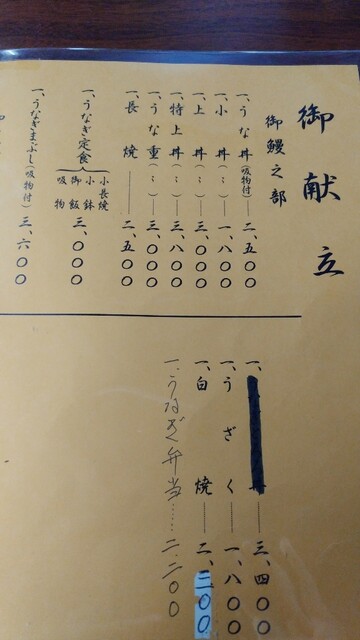 御献立
御鰻之部
一、うな丼(吸物付)――二、五〇〇
一、小丼(〃)――一、八〇〇
一、上丼(〃)――三、〇〇〇
一、特上丼(〃)――三、八〇〇
一、うな重(〃)――三、〇〇〇
一、長焼――二、五〇〇
一、うなぎ定食 小長焼 小鉢 御飯 吸物 三、〇〇〇
一、うなぎまぶし(吸物付)三、六〇〇
一、――三、四〇〇
一、うざく――一、八〇〇
一、白焼――二、三〇〇
一、うなぎ弁当……二、二〇〇